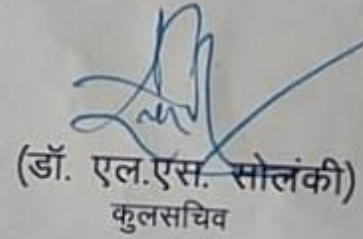 (डॉ. एल.एस. सोलंकी)
कुलसचिव